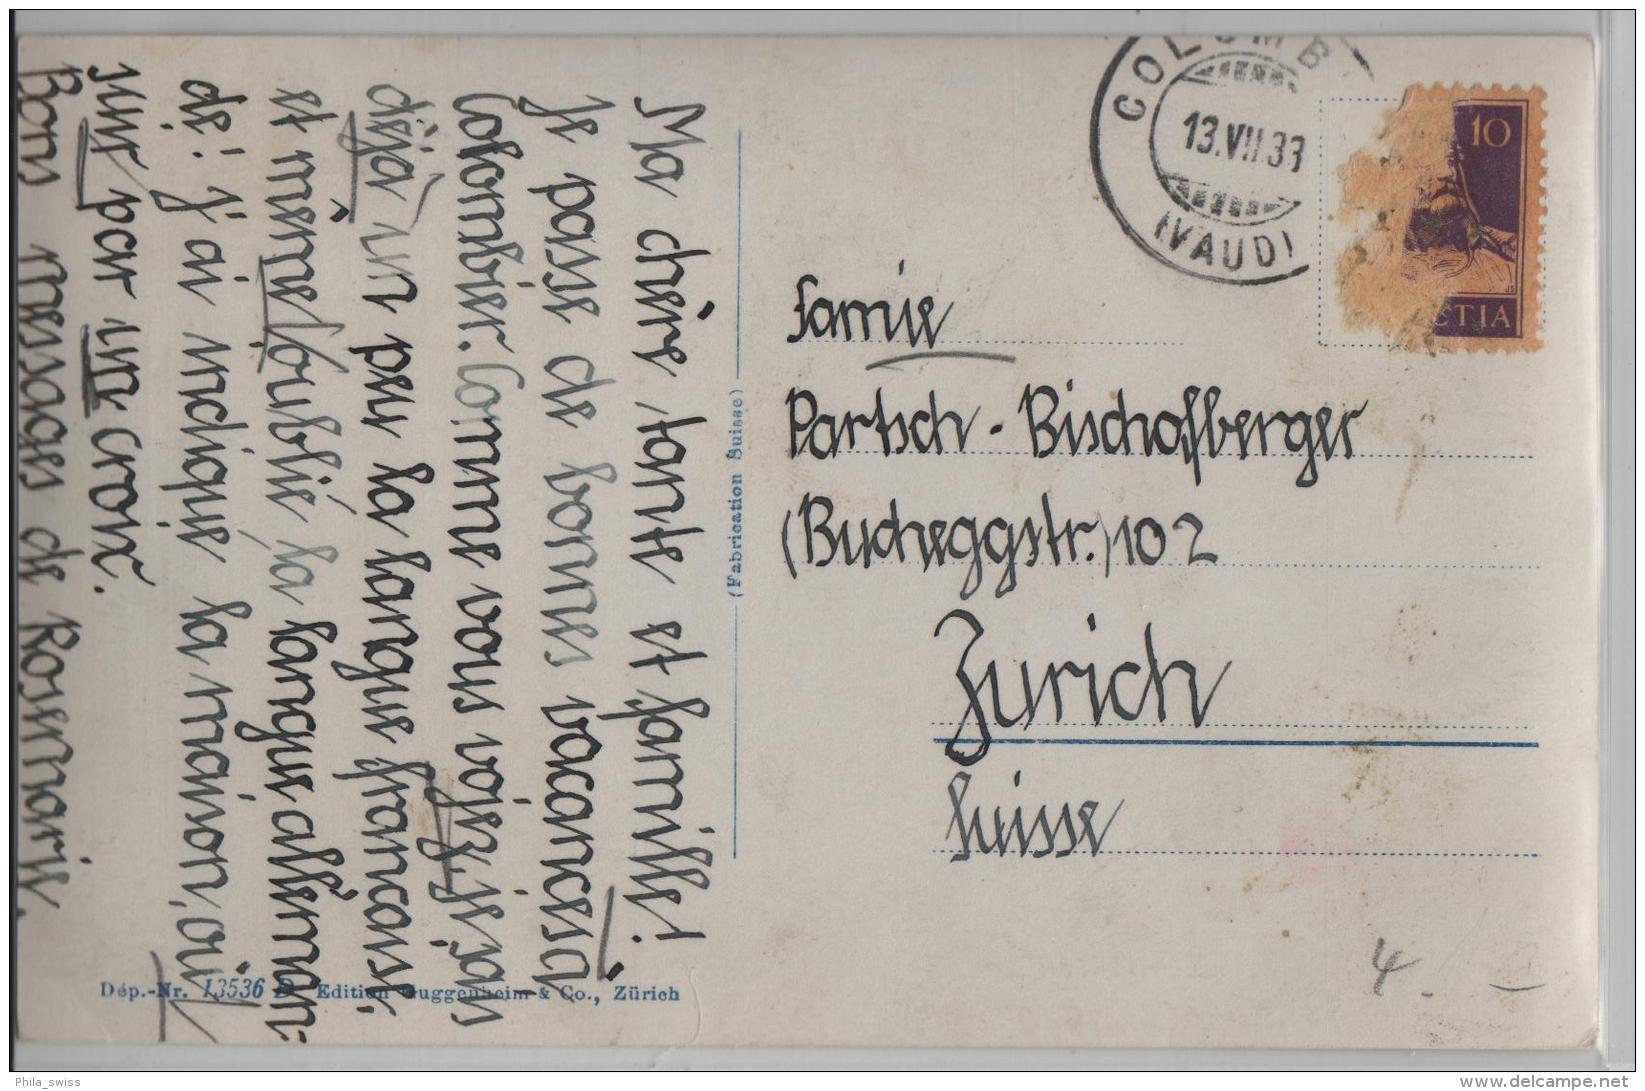 Ma chère tante et famille!
Je passe de bonnes vacances à
Colombier. Comme vous vojez, je sais
déja un peu la langue francaise
et même j'oublié la langue alleman-
de! j'ai indique la maison, où
sur par un croix.
Bons messages de Rosemarie.
(Fabrication Suisse)
Dép.-Nr. 13536 D Edition Guggenheim & Co., Zürich
COLOMB
13.VII.33
(VAUD)
10
ETIA
Famie
Partsch - Bischofberger
(Bucheggstr.) 102
Zürich
Suisse
4.
Phila_swiss
delcampe.net